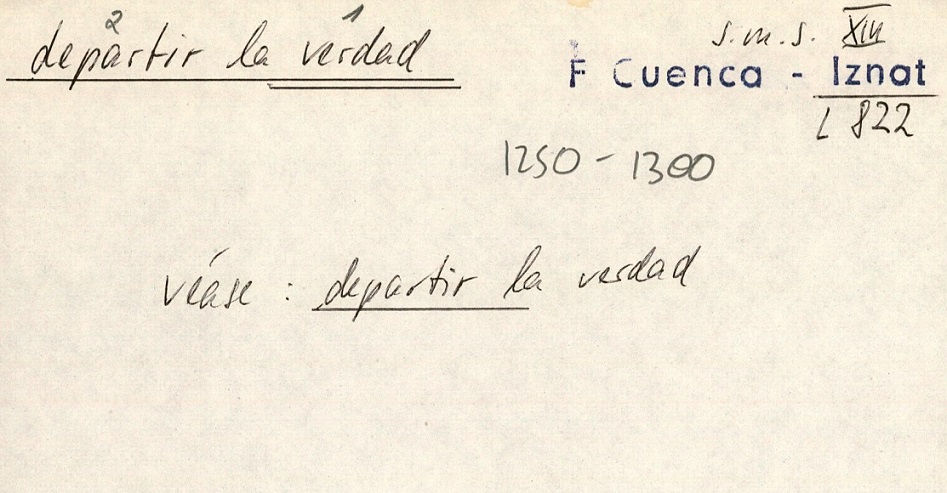 2 1
departir la verdad
s.m.s. XIII
F Cuenca - Iznat
L 822
1250 - 1300
véase : departir la verdad